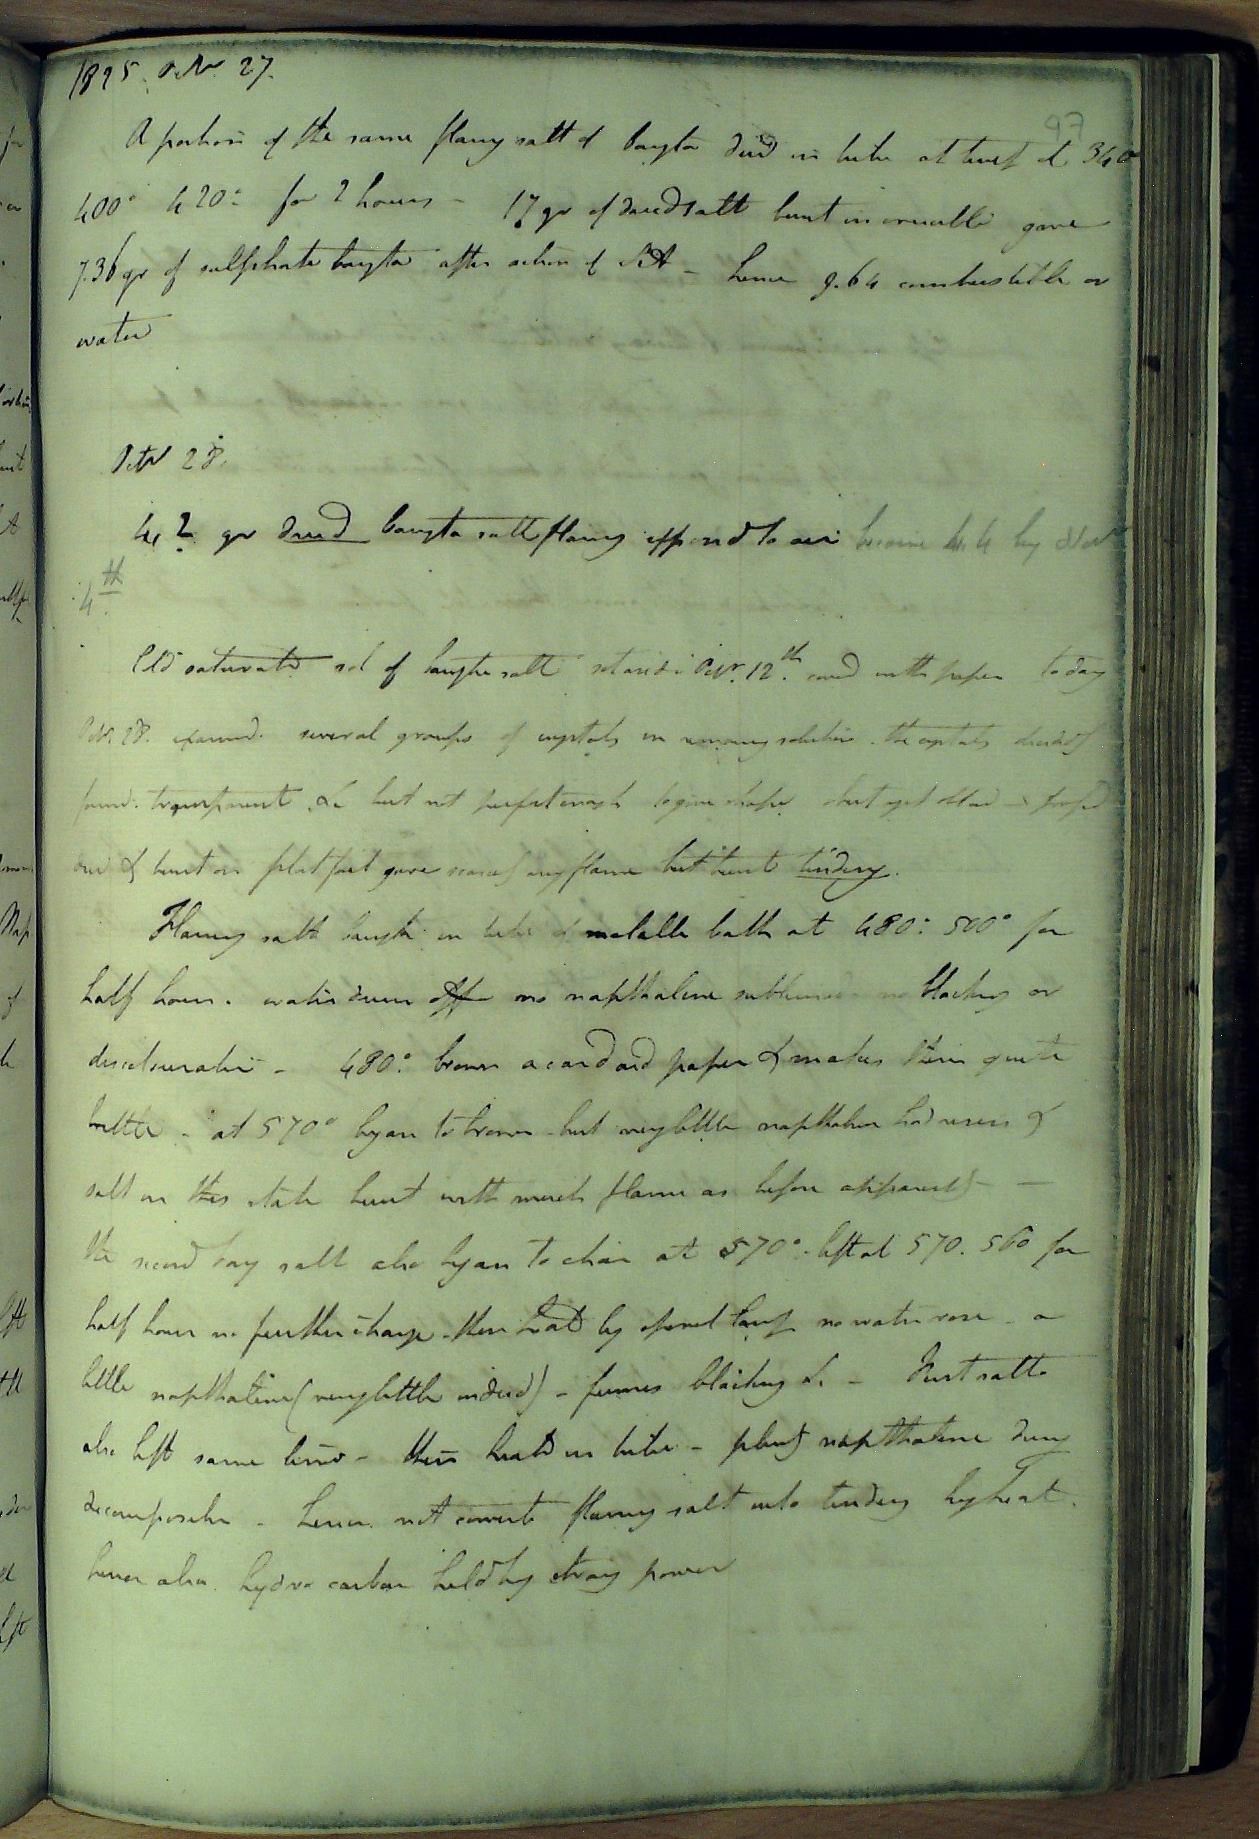 1825. Octr. 27.
97
A portion of the same flaming salt of baryta dried in tube at temp of 340
400° 420° for 2 hours - 17 gr of dried salt burnt in crucible gave
7.36 gr of sulphate baryta after action of SA - hence 9.64 combustible or
water
Octr 28.
4.2 gr dried baryta salt flaming exposed to air became 4.4 by Novr
4th
Cld saturated sol of baryta salt set aside Octr. 12th. covd with paper to day
Octr. 28. examind. several groups of crystals in remaining solution. the crystals
found. transparent &c but not perfect enough to give shape
and & burnt on plat foil gave scarcely any flame but burnt tindery.
Flaming salt baryta in tube & metallic bath at 480° 500° for
half hour. water driven off no napthaline sublimed no blacking or
discolouration - 480° browns a card and paper & makes them quite
brittle - at 570° began to brown - but very little napthaline had risen &
salt in this state burnt with much flame as before apparently -
the second bary salt also began to char at 570° - left at 570. 560 for
half hour no further change - then heated by spirit lamp no water rose - a
little napthaline (very little indeed) - fumes blacking &c - First salt
also left same time - then heated in tube - plenty napthaline during
decomposition - hence not convert flaming salt into tindery by heat.
hence also hydro carbon held by strong power